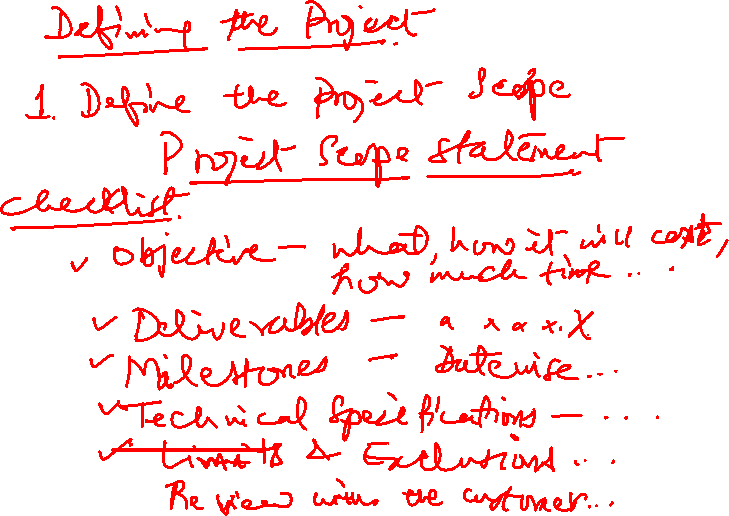 Defining the Project
1. Define the Project Scope
Project Scope Statement
Checklist
✓ Objective – what, how it will cost,
how much time...
✓ Deliverables – x x x x. X
✓ Milestones – Datewise...
✓ Technical Specifications – ....
✓ Limits & Exclusions...
Review with the customer...